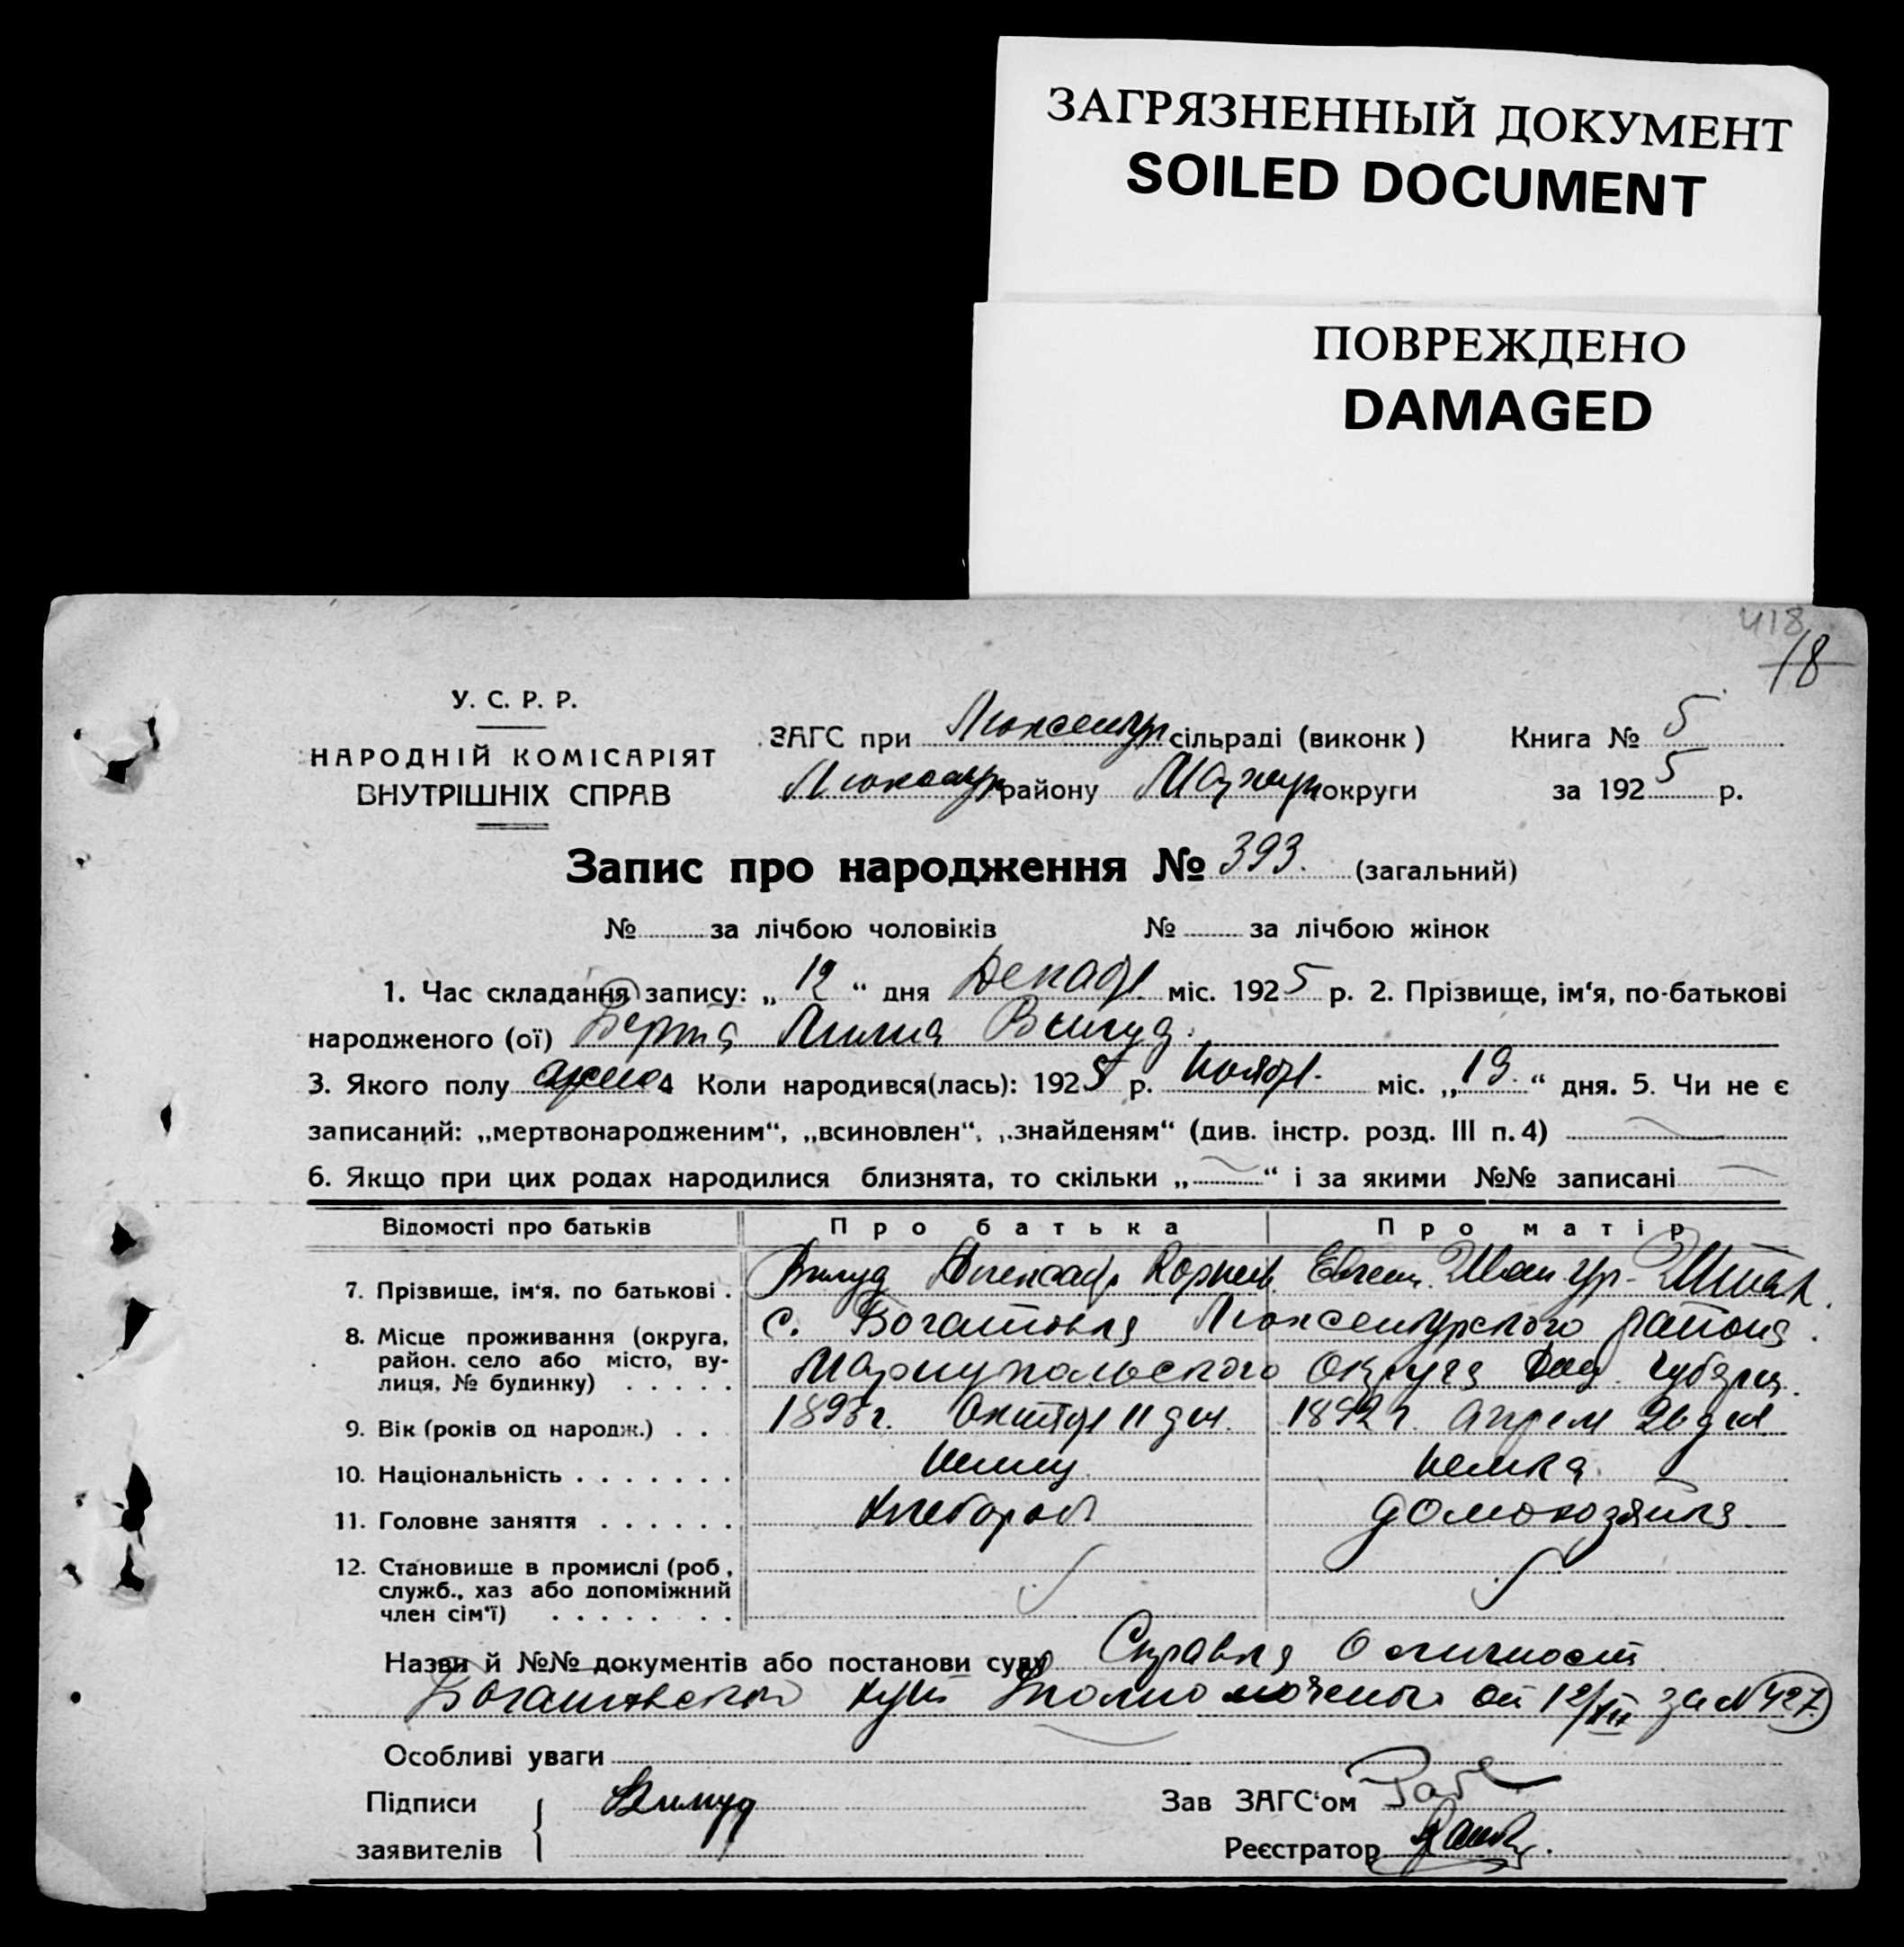 ЗАГРЯЗНЕННЫЙ ДОКУМЕНТ
SOILED DOCUMENT
ПОВРЕЖДЕНО
DAMAGED
418
18
У. С. Р. Р.
НАРОДНІЙ КОМІСАРІЯТ
ВНУТРІШНІХ СПРАВ
ЗАГС при Люксембур сільраді (виконк) Книга № 5
району округи за 1925 р.
Запис про народження № 393. (загальний)
№ за лічбою чоловіків № за лічбою жінок
1. Час складання запису: „ 12 “ дня Декабр міс. 1925 р. 2. Прізвище, ім‘я, по-батькові
народженого (ої) Берта Лилия
3. Якого полу 4 Коли народився(лась): 1925 р. Ноябр. міс. „ 19. “ дня. 5. Чи не є
записаний: „мертвонародженим“, „всиновлен“, „знайденям“ (див. інстр. розд. III п. 4)
6. Якщо при цих родах народилися близнята, то скільки „ “ і за якими №№ записані
Відомості про батьків Про батька Про матір
7. Прізвище, ім‘я, по батькові . Александр Корнеев. Евген.
8. Місце проживання (округа, район. село або місто, вулиця, № будинку) с. Богатовка Люксембургского района.
Мариупольского Округа
9. Вік (років од народж.) . . Октябр 11 дня. 1892 г. Апрел 26 дня
10. Національність немец немка.
11. Головне заняття хлебороб домохозяйка.
12. Становище в промислі (роб,
служб., хаз або допоміжний
член сім‘ї)
Назви й №№ документів або постанови суду Справка о личности
Богатовской от 12/XII за № 427.
Особливі уваги
Підписи
заявителів
Зав ЗАГС‘ом
Реєстратор